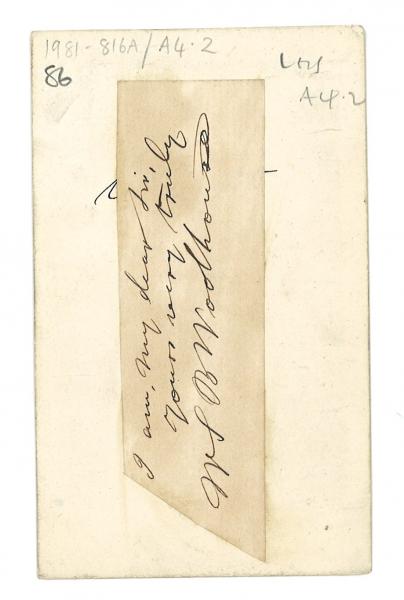 1981-816A/A4.2
86
A4.2
I am, my dear Sir,
Yours very truly
W S B Woolhouse